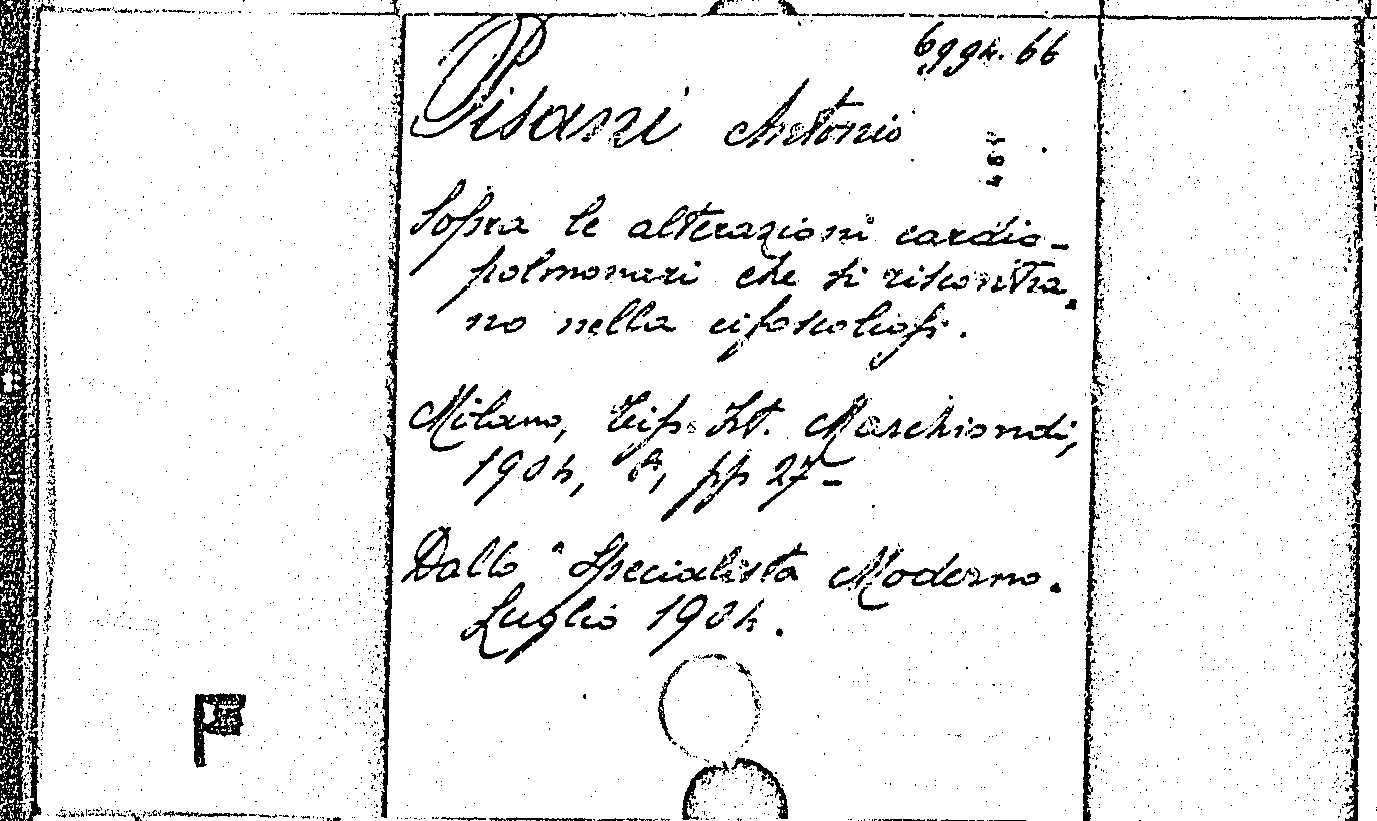 6994. 66
Pisani Antonio
Sopra le alterazioni cardio-
polmonari che si riscontra-
no nella cifoscoliosi.
Milano, Tip. Ist. Marchiondi,
1904, 8°, pp 27-
Dallo "Specialista Moderno.
Luglio 1904.